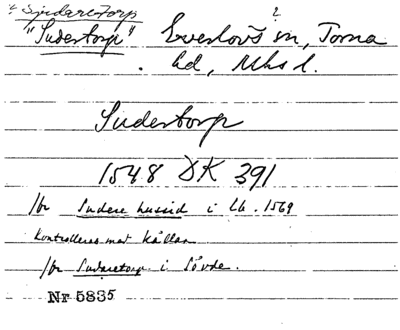 "Sjudaretorp
"Sudertorp" Everlövs sn, Torna
hd, Mhs l.
Sudertorp
1548 DK 391
/br Sudere hussid i Lb. 1569
Kontrolleras mot källan
/br Sudaretorp i Sövde.
Nr 5835